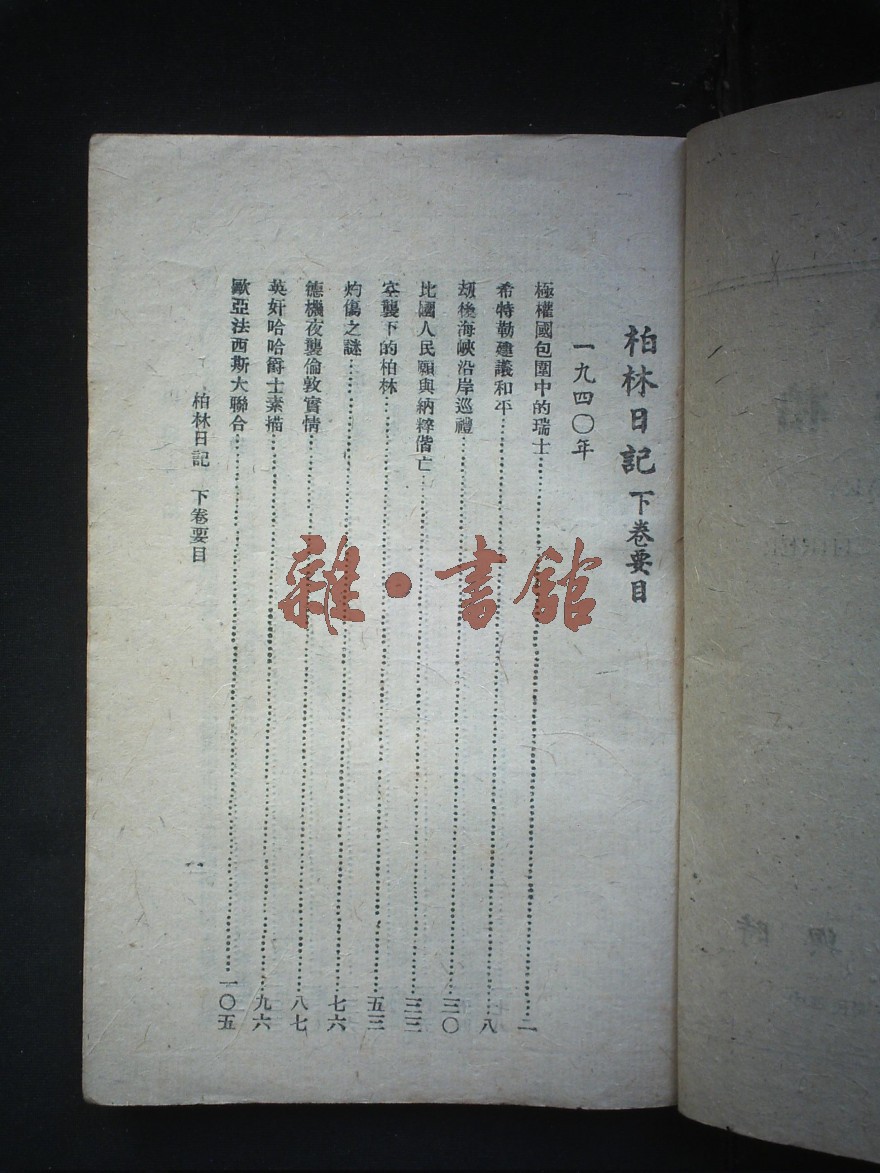 柏林日記 下卷要目
一九四〇年
極權國包圍中的瑞士……二
希特勒建議和平……八
劫後海峽沿岸巡禮……三〇
比國人民願與納粹偕亡……三三
空襲下的柏林……五三
灼傷之謎……七六
德機夜襲倫敦實情……八七
英奸哈哈爵士素描……九六
歐亞法西斯大聯合……一〇五
柏林日記 下卷要目
一
雜·書館